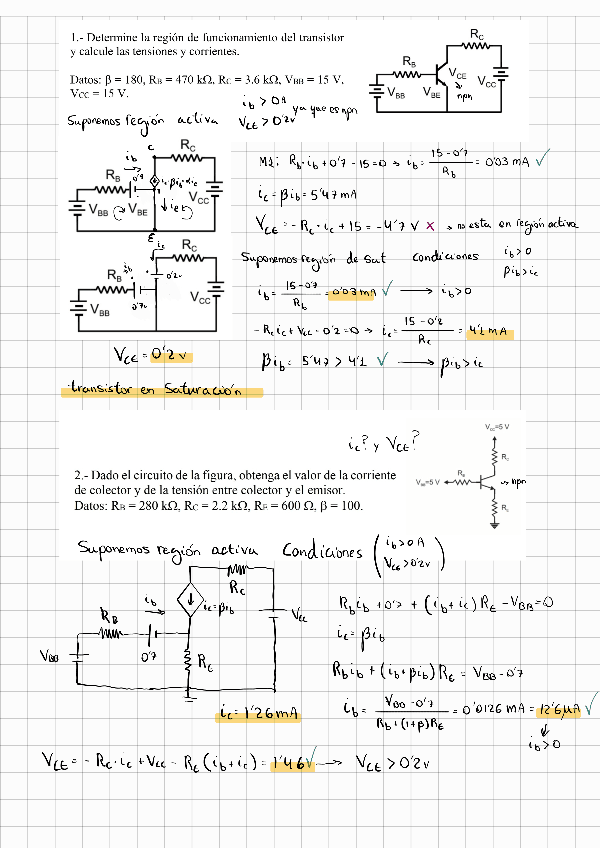 1.- Determine la región de funcionamiento del transistor
y calcule las tensiones y corrientes.
Datos: β = 180, RB = 470 kΩ, RC = 3.6 kΩ, VBB = 15 V,
VCC = 15 V.
RC
RB
VCE
VCC
VBB
VBE
npn
Suponemos región activa
ib > 0A
VCE > 0'2v
ya que es npn
C
ib
RC
RB
0'7
ic=βib
VCC
VBB
VBE
E
M1: Rb·ib + 0'7 - 15 = 0 → ib = 15 - 0'7 / Rb = 0'03 mA ✓
ic = βib = 5'47 mA
VCE = - Rc·ic + 15 = -4'7 V x → no esta en región activa
ic
RC
RB
ib
0'2v
0'7v
VCC
VBB
Suponemos región de Sat condiciones ib > 0
βib > ic
ib = 15 - 0'7 / Rb = 0'03 mA ✓ → ib > 0
- Rc ic + Vcc - 0'2 = 0 → ic = 15 - 0'2 / Rc = 4'1 mA
VCE = 0'2 v
βib = 5'47 > 4'1 ✓ → βib > ic
transistor en Saturación
ic? y VCE?
2.- Dado el circuito de la figura, obtenga el valor de la corriente
de colector y de la tensión entre colector y el emisor.
Datos: RB = 280 kΩ, RC = 2.2 kΩ, RE = 600 Ω, β = 100.
VCC=5 V
RC
VBB=5 V
RB
→ npn
RE
Suponemos región activa Condiciones ( ib > 0 A
VCE > 0'2v )
RC
ib
RB
ic = βib
VCC
VBB
0'7
RE
Rb ib + 0'7 + (ib + ic) RE - VBB = 0
ic = βib
Rb ib + (ib + βib) RE = VBB - 0'7
ic = 1'26 mA
ib = VBB - 0'7 / Rb + (1+β)RE = 0'0126 mA = 12'6 μA ✓
ib > 0
VCE = - Rc·ic + Vcc - RE (ib + ic) = 1'46 V ✓ → VCE > 0'2 v